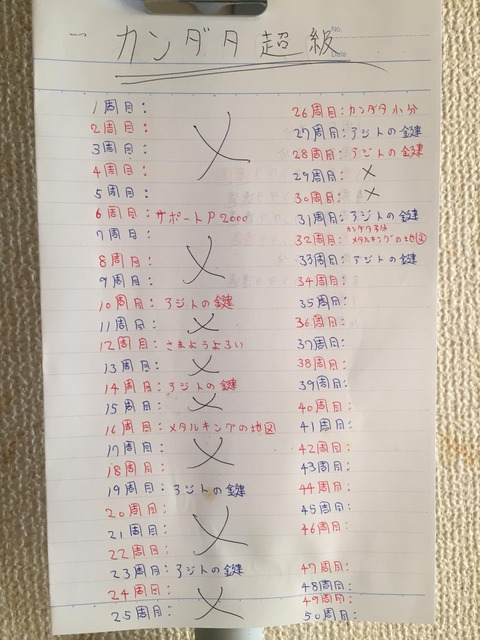 カンダタ超級
No.
Date
1周目:
2周目:
3周目:
4周目:
5周目:
6周目: サポートP2000
7周目:
8周目:
9周目:
10周目: アジトの鍵
11周目:
12周目: さまようよろい
13周目:
14周目: アジトの鍵
15周目:
16周目: メタルキングの地図
17周目:
18周目:
19周目: アジトの鍵
20周目:
21周目:
22周目:
23周目: アジトの鍵
24周目:
25周目:
26周目: カンダタ子分
27周目: アジトの鍵
28周目: アジトの鍵
29周目: ×
30周目: ×
31周目: アジトの鍵
カンダタ子分
32周目: メタルキングの地図
33周目: アジトの鍵
34周目:
35周目:
36周目:
37周目:
38周目:
39周目:
40周目:
41周目:
42周目:
43周目:
44周目:
45周目:
46周目:
47周目:
48周目:
49周目:
50周目: